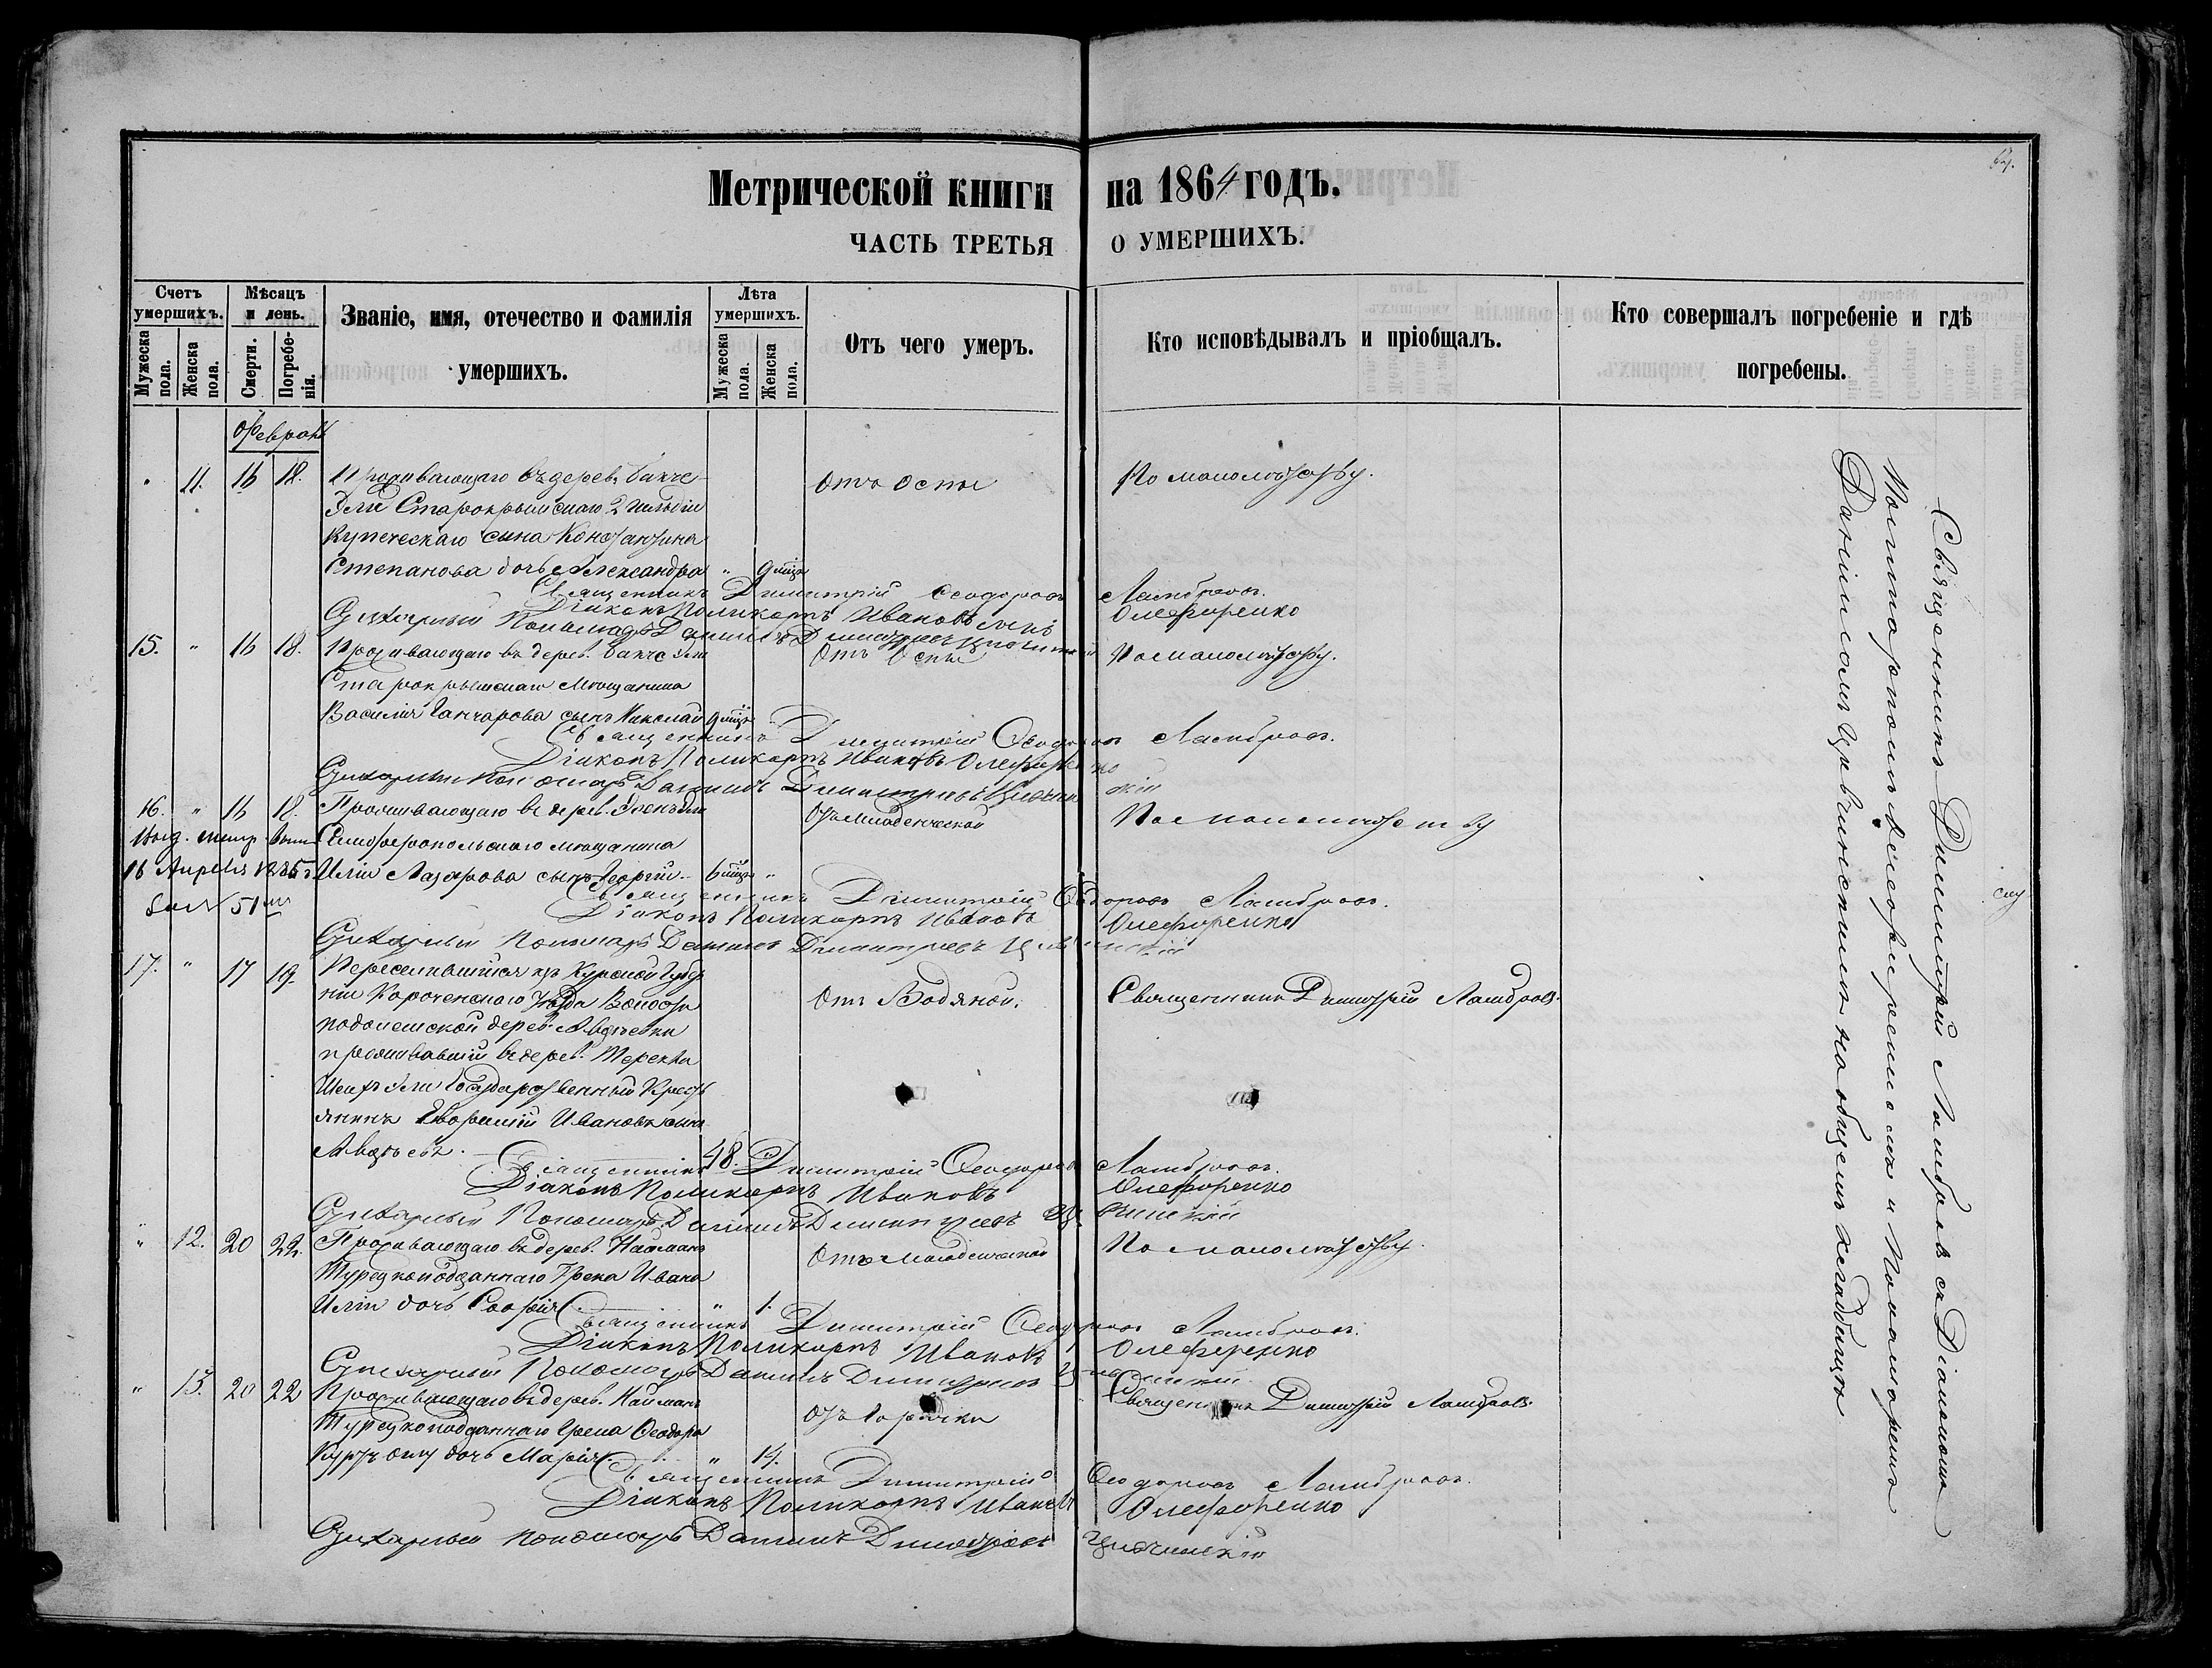 Метрической книги на 1864 годъ.
ЧАСТЬ ТРЕТЬЯ О УМЕРШИХЪ.
Счетъ умершихъ.
Мужеска пола.
Женска пола.
Мѣсяцъ и день.
Смерти.
Погребенія.
Званіе, имя, отечество и фамилія умершихъ.
Лѣта умершихъ.
Мужеска пола.
Женска пола.
Отъ чего умеръ.
Кто исповѣдывалъ и пріобщалъ.
Кто совершалъ погребеніе и гдѣ погребены.
Февраль
" 11. 16 18. Проживающаго въ дерев. Бакче-
Эли Старокрымскаго 2 гильдіи
Купеческаго сына Константина
Степанова дочь Александра " 9 мѣц.
Отъ Оспы
По малолѣтству.
Священникъ Димитрій Феодоровъ Ламбровъ.
Діаконъ Поликарпъ Ивановъ Олеференко
Пономарь Даніилъ Димитріевъ
15. " 16 18. Проживающаго въ дерев. Бакче Эли
Старокрымскаго Мѣщанина
Василія Ганчарова сынъ Николай 9 мѣц. "
Отъ Оспы
По малолѣтству.
Священникъ Димитрій Феодоровъ Ламбровъ.
Діаконъ Поликарпъ Ивановъ Олеференко
Пономарь Даніилъ Димитріевъ
16. " 16 18. Проживающаго въ дерев.
Симферопольскаго мѣщанина
Иліи Лазарова сынъ Георгій. 6 мѣц. "
Отъ Младенческой
По малолѣтству
Выд. метр. вып.
16 Апрѣля
51
Священникъ Димитрій Феодоровъ Ламбровъ.
Діаконъ Поликарпъ Ивановъ Олеференко
Пономарь Даніилъ Димитріевъ
17. " 17 19. Переселившійся изъ Курской Губер
ніи Короченскаго уѣзда Волости
дерев. Авдѣевки
проживавшій въ дерев.
Шейхъ Эли Государственный Кресть
янинъ Ивановъ сынъ
Авдѣевъ. 48.
Отъ Водяной.
Священникъ Димитрій Ламбровъ.
Священникъ Димитрій Феодоровъ Ламбровъ.
Діаконъ Поликарпъ Ивановъ Олеференко
Пономарь Даніилъ Димитріевъ
" 12. 20 22. Проживающаго въ дерев. Найманъ
Турецкоподданнаго Грека Ивана
Иліи дочь Софія. " 1.
Отъ Младенческой
По малолѣтству.
Священникъ Димитрій Феодоровъ Ламбровъ.
Діаконъ Поликарпъ Ивановъ Олеференко
Пономарь Даніилъ Димитріевъ
" 13. 20 22 Проживающаго въ дерев. Найманъ
Турецкоподданнаго Грека Феодора
дочь Марія. " 14.
Отъ Горячки
Священникъ Димитрій Ламбровъ.
Священникъ Димитрій Феодоровъ Ламбровъ.
Діаконъ Поликарпъ Ивановъ Олеференко
Пономарь Даніилъ Димитріевъ
Священникъ Димитрій Ламбровъ съ Діакономъ
Поликарпомъ Олеференкомъ и Пономаремъ
Даніиломъ на общемъ кладбищѣ